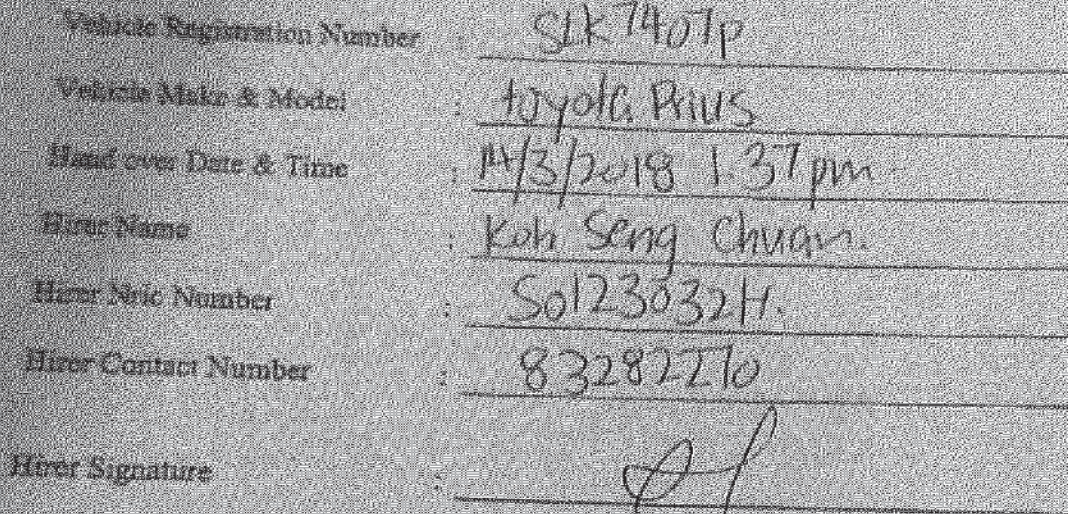 Vehicle Registration Number : SLK7407P
Vehicle Make & Model : toyota Prius
Hand over Date & Time : 14/3/2018 1.37pm
Hirer Name : Koh Seng Chuan.
Hirer Nric Number : S0123032H.
Hirer Contact Number : 83282270
Hirer Signature :